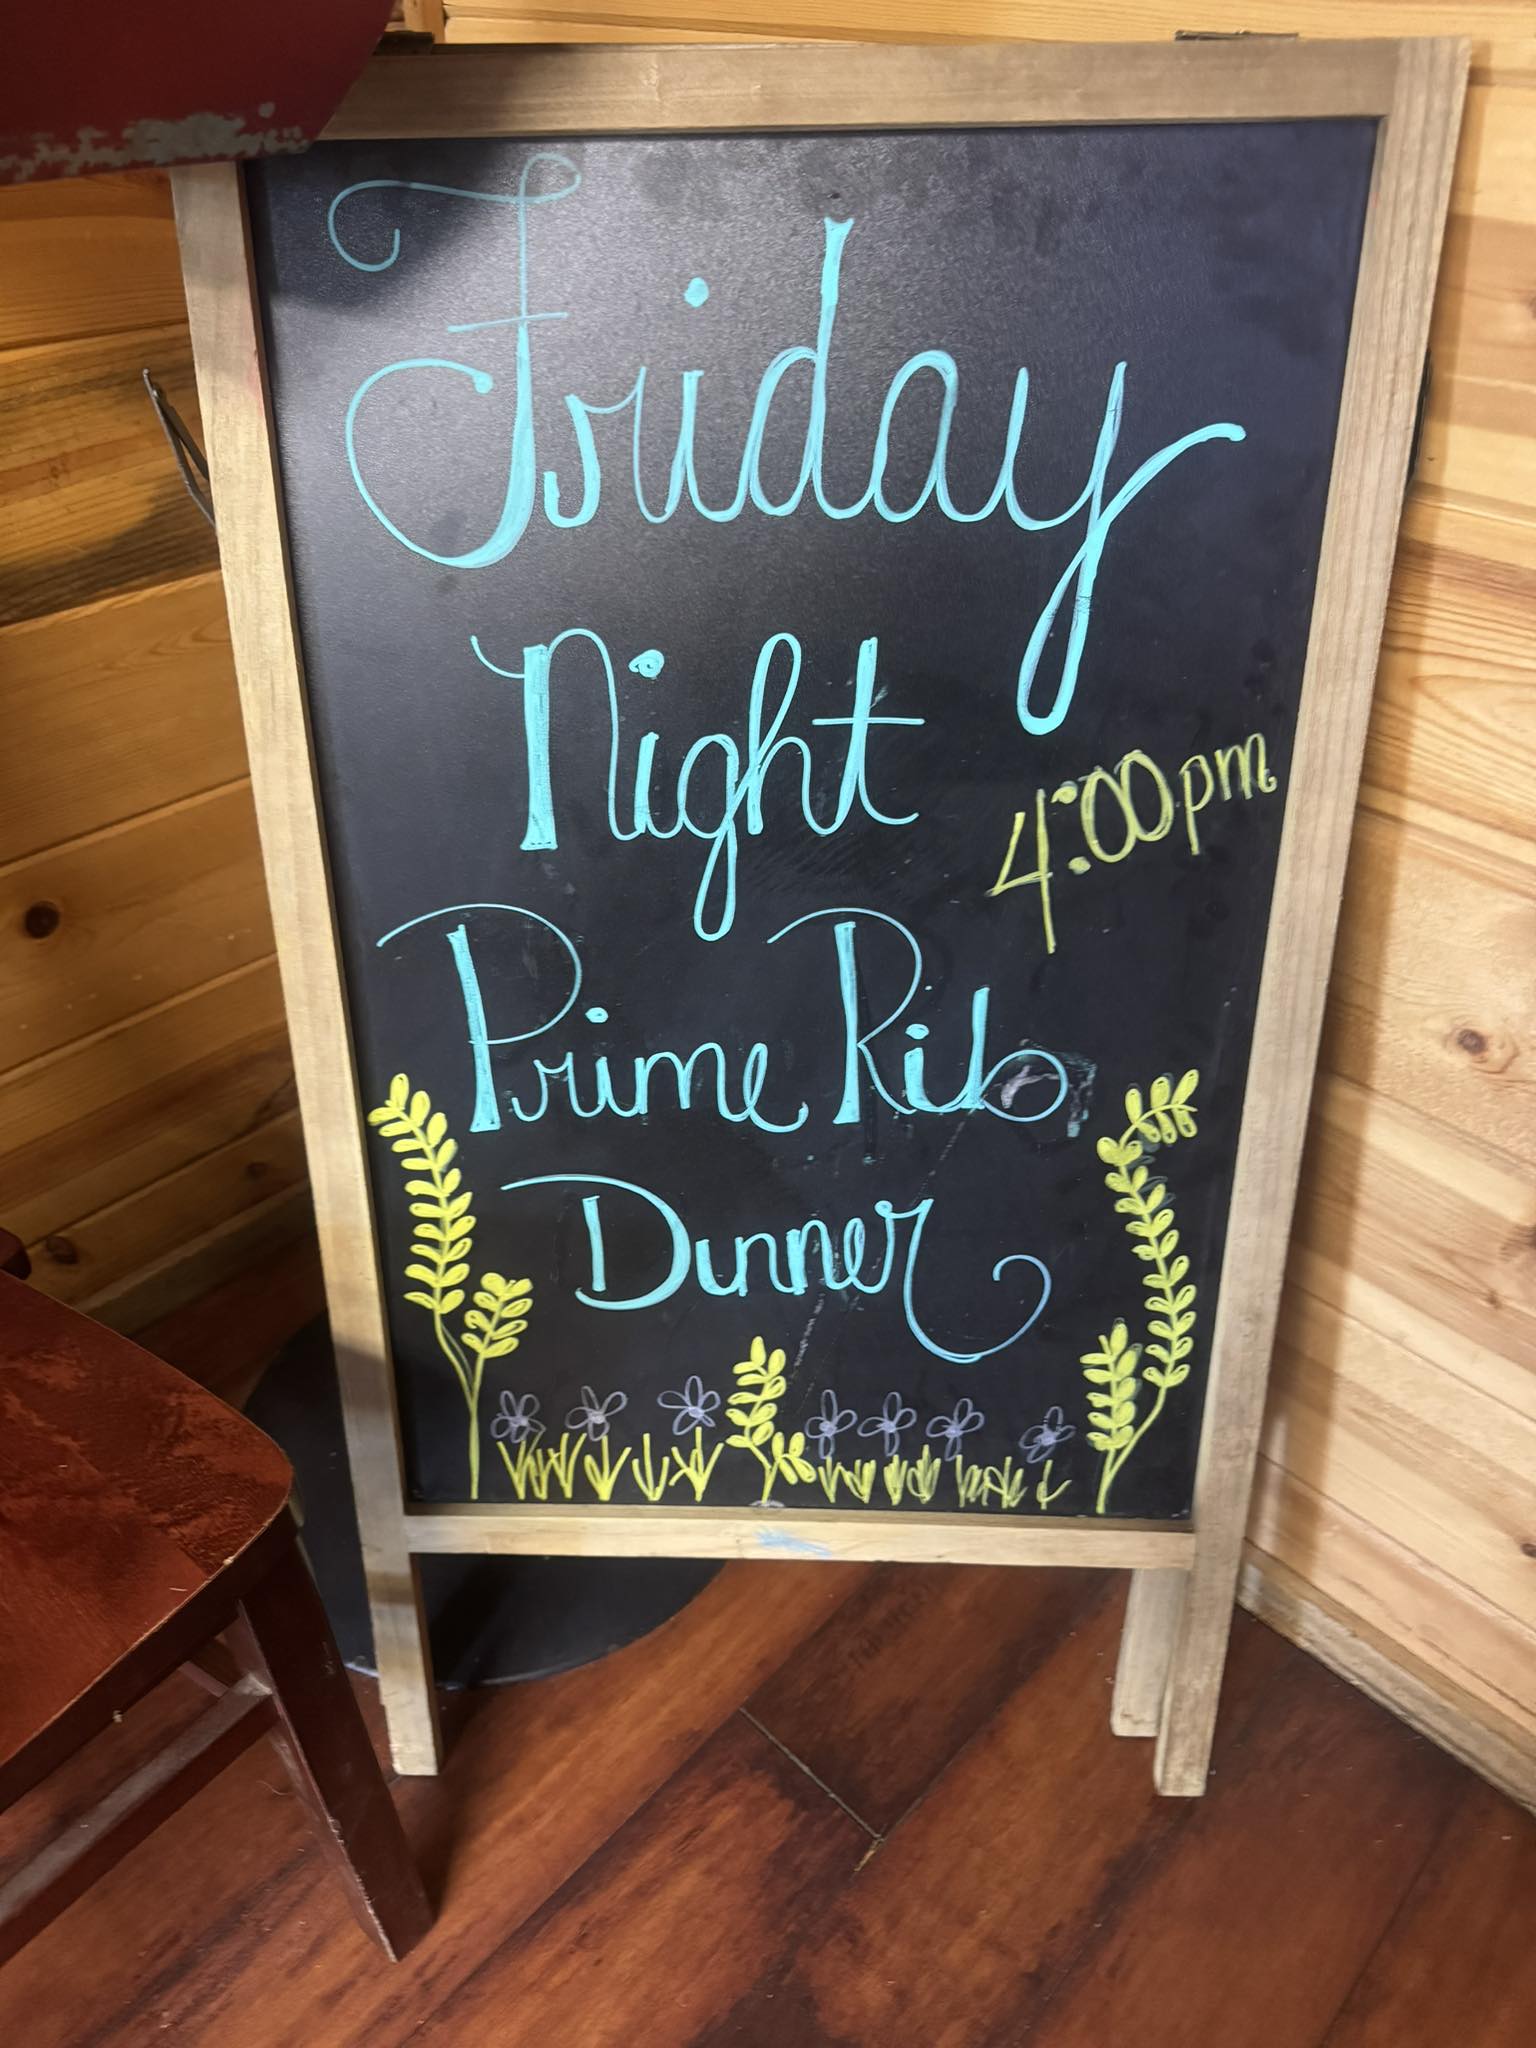 Friday
Night
4:00pm
Prime Rib
Dinner